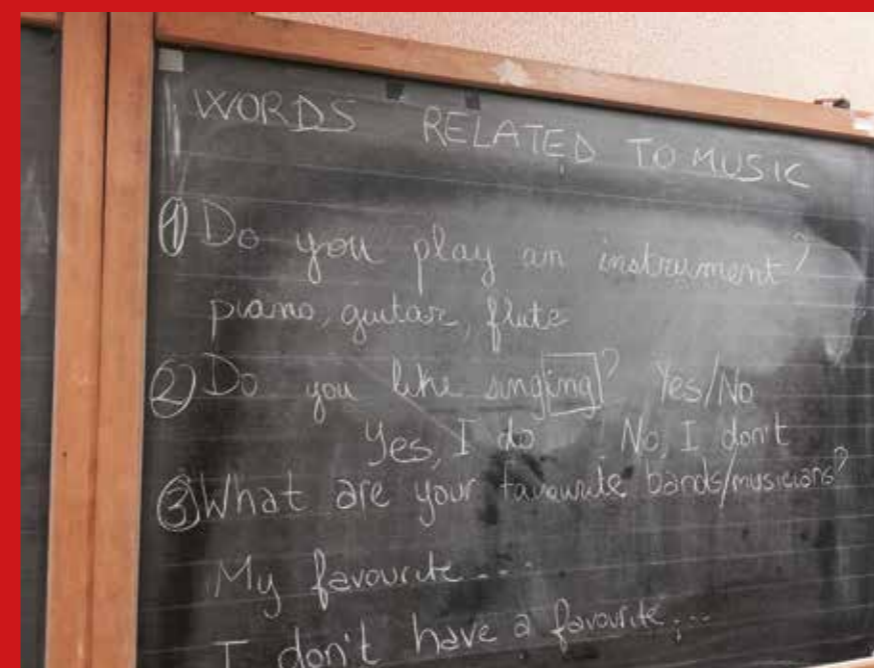 WORDS RELATED TO MUSIC
① Do you play an instrument?
piano, guitar, flute
② Do you like singing? Yes/No
Yes, I do No, I don't
③ What are your favourite bands/musicians?
My favourite....
I don't have a favourite....